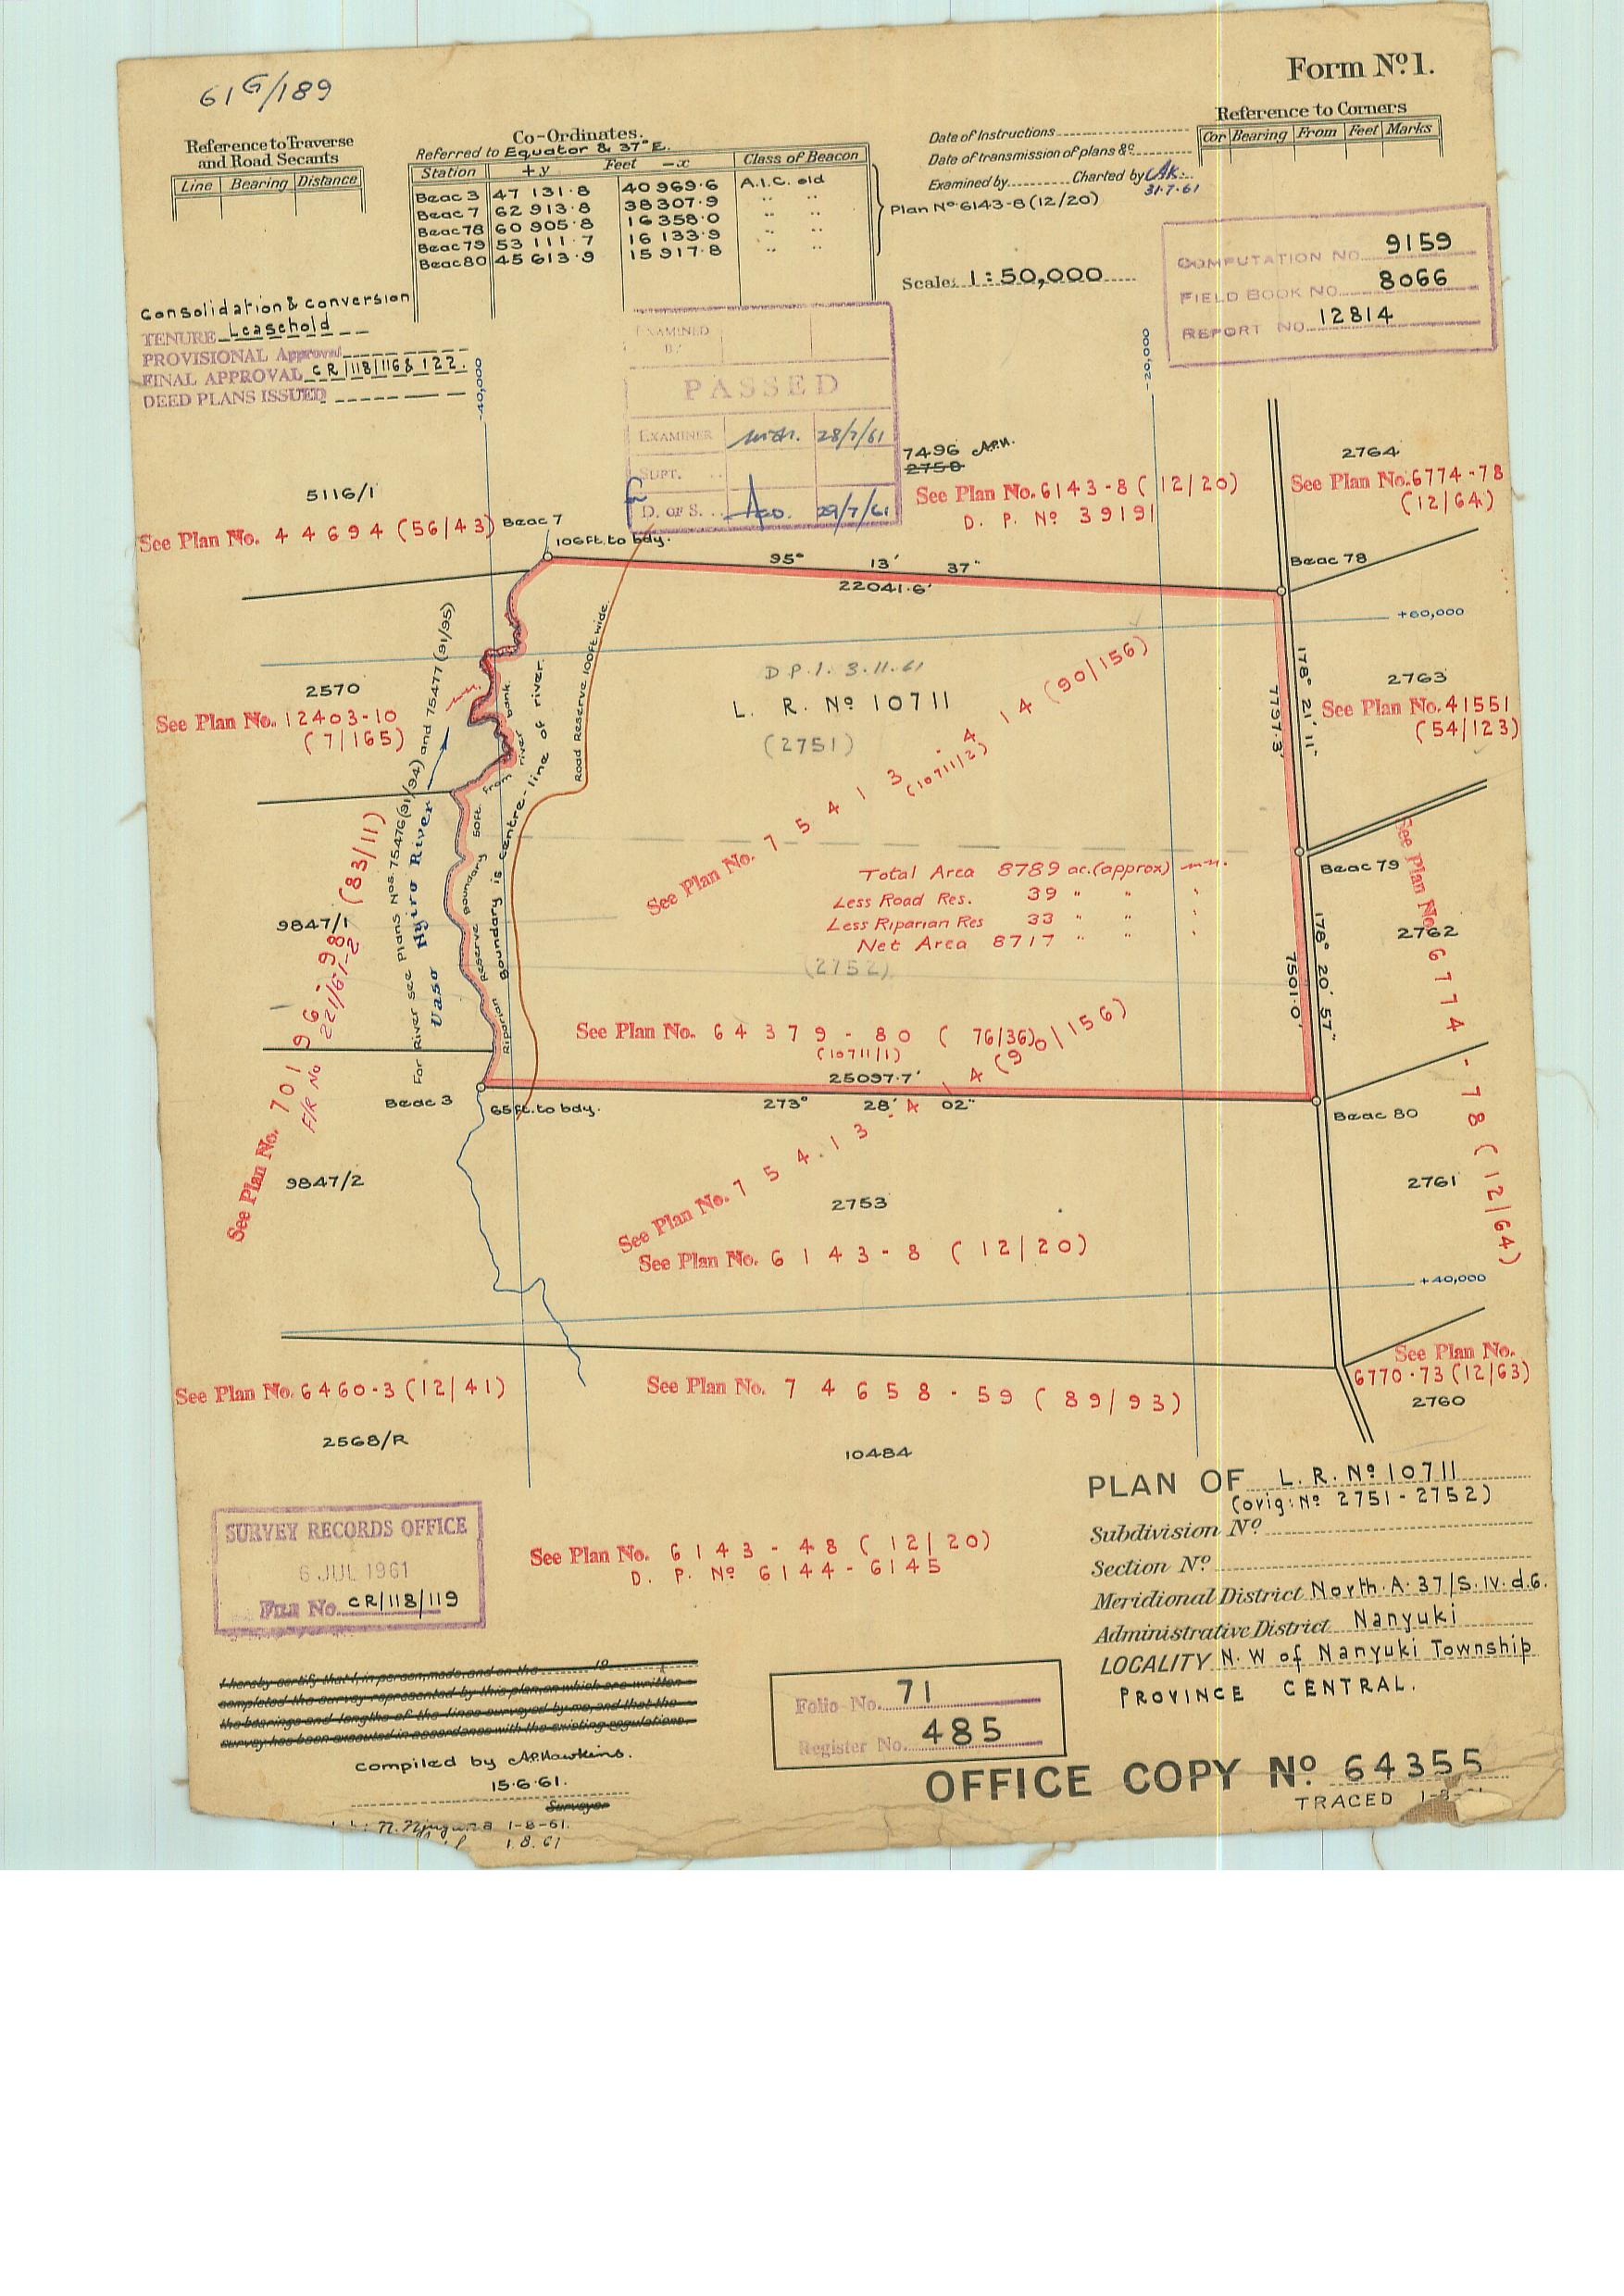 61G/189
Form Nº 1.
Reference to Traverse
and Road Secants
Line Bearing Distance
Co-Ordinates.
Referred to Equator & 37° E.
Station +y Feet -x Class of Beacon
Beac 3 47 131·8 40 969·6 A.I.C. old
Beac 7 62 913·8 38 307·9 " "
Beac 78 60 905·8 16 358·0 " "
Beac 79 53 111·7 16 133·9 " "
Beac 80 45 613·9 15 917·8 " "
Date of Instructions
Date of transmission of plans &c
Examined by Charted by AK.
31·7·61
Plan Nº 6143-8 (12/20)
Scale: 1:50,000
Reference to Corners
Cor Bearing From Feet Marks
COMPUTATION NO 9159
FIELD BOOK NO. 8066
REPORT NO. 12814
Consolidation & Conversion
TENURE Leasehold
PROVISIONAL Approval
FINAL APPROVAL CR/118/116 & 122.
DEED PLANS ISSUED
EXAMINED
PASSED
EXAMINER 28/7/61
SUPT.
D. OF S. 29/7/61
-40,000
-20,000
7496
2750
See Plan No. 6143-8 (12/20)
D. P. Nº 39191
2764
See Plan No. 6774-78
(12/64)
5116/1
See Plan No. 44694 (56/43)
Beac 7
106ft. to bdy.
95° 13' 37"
22041·6'
Beac 78
+60,000
178° 21' 11"
7797·3'
2763
See Plan No. 41551
(54/123)
2570
See Plan No. 12403-10
(7/165)
D.P.1. 3.11.61
L. R. Nº 10711
(2751)
See Plan No. 75413 - 414 (90/156)
(10711/2)
Road Reserve 100ft. wide.
Boundary is centre-line of river.
Riparian Reserve Boundary 50ft. from river bank.
For River see Plans Nos. 75476 (91/94) and 75477 (91/95)
Uaso Nyiro River
Total Area 8789 ac. (approx)
Less Road Res. 39 " "
Less Riparian Res 33 " "
Net Area 8717 " "
(2752)
Beac 79
See Plan No. 6774-78 (12/64)
2762
178° 20' 57"
7501·0'
9847/1
See Plan No. 70196-98 (83/11)
F/R No 221/61-2
See Plan No. 64379-80 (76/36)
(10711/1)
25097·7'
273° 28' 02"
Beac 3
65ft. to bdy.
Beac 80
See Plan No. 75413-414 (90/156)
9847/2
2753
2761
See Plan No. 6143-8 (12/20)
+40,000
See Plan No. 6460-3 (12/41)
See Plan No. 74658-59 (89/93)
See Plan No.
6770-73 (12/63)
2760
2568/R
10484
PLAN OF L.R. Nº 10711
(orig: Nº 2751-2752)
Subdivision Nº
Section Nº
Meridional District North. A. 37/S.IV. d.6.
Administrative District Nanyuki
LOCALITY N.W of Nanyuki Township
PROVINCE CENTRAL.
SURVEY RECORDS OFFICE
6 JUL 1961
FILE No. CR/118/119
See Plan No. 6143-48 (12/20)
D. P. Nº 6144-6145
I hereby certify that I, in person, made, and on the 19
completed the survey represented by this plan, on which are written
the bearings and lengths of the lines surveyed by me, and that the
survey has been executed in accordance with the existing regulations.
Compiled by A.P. Hawkins.
15·6·61.
Surveyor
N. Njuguna 1-8-61.
1.8.61
Folio No. 71
Register No. 485
OFFICE COPY Nº 64355
TRACED